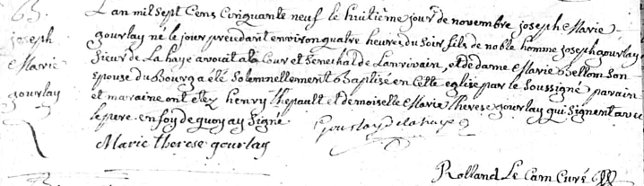 63
joseph
Marie
gourlay
L'an mil sept Cens Cinquante neuf le huitieme jour de novembre joseph Marie
gourlay né le jour precedant environ quatre heures du soir fils de noble homme joseph gourlay
Sieur de La haye avocat a la Cour et Senechal de Lanrivain, et de dame Marie Bellom Son
Epouse du Bourg a été Solemnellement Baptisé en Cette eglise par le Soussigné parain
et maraine ont etez henry thepault et demoiselle Marie therese gourlay qui Signent avec
le pere. en foy de quoy ay Signé
Gourlay de la haye
Marie therese gourlay
Rolland Le Cam Curé